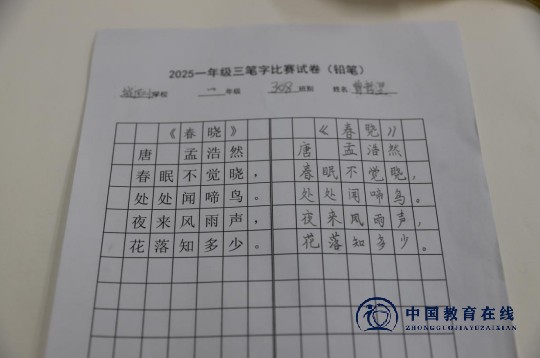 2025一年级三笔字比赛试卷（铅笔）
学校 一 年级 308 班别 姓名
《春晓》
唐 孟浩然
春眠不觉晓，
处处闻啼鸟。
夜来风雨声，
花落知多少。
《春晓》
唐 孟浩然
春眠不觉晓，
处处闻啼鸟。
夜来风雨声，
花落知多少。
中国教育在线
ZHONGGUOJIAYUZAIXIAN